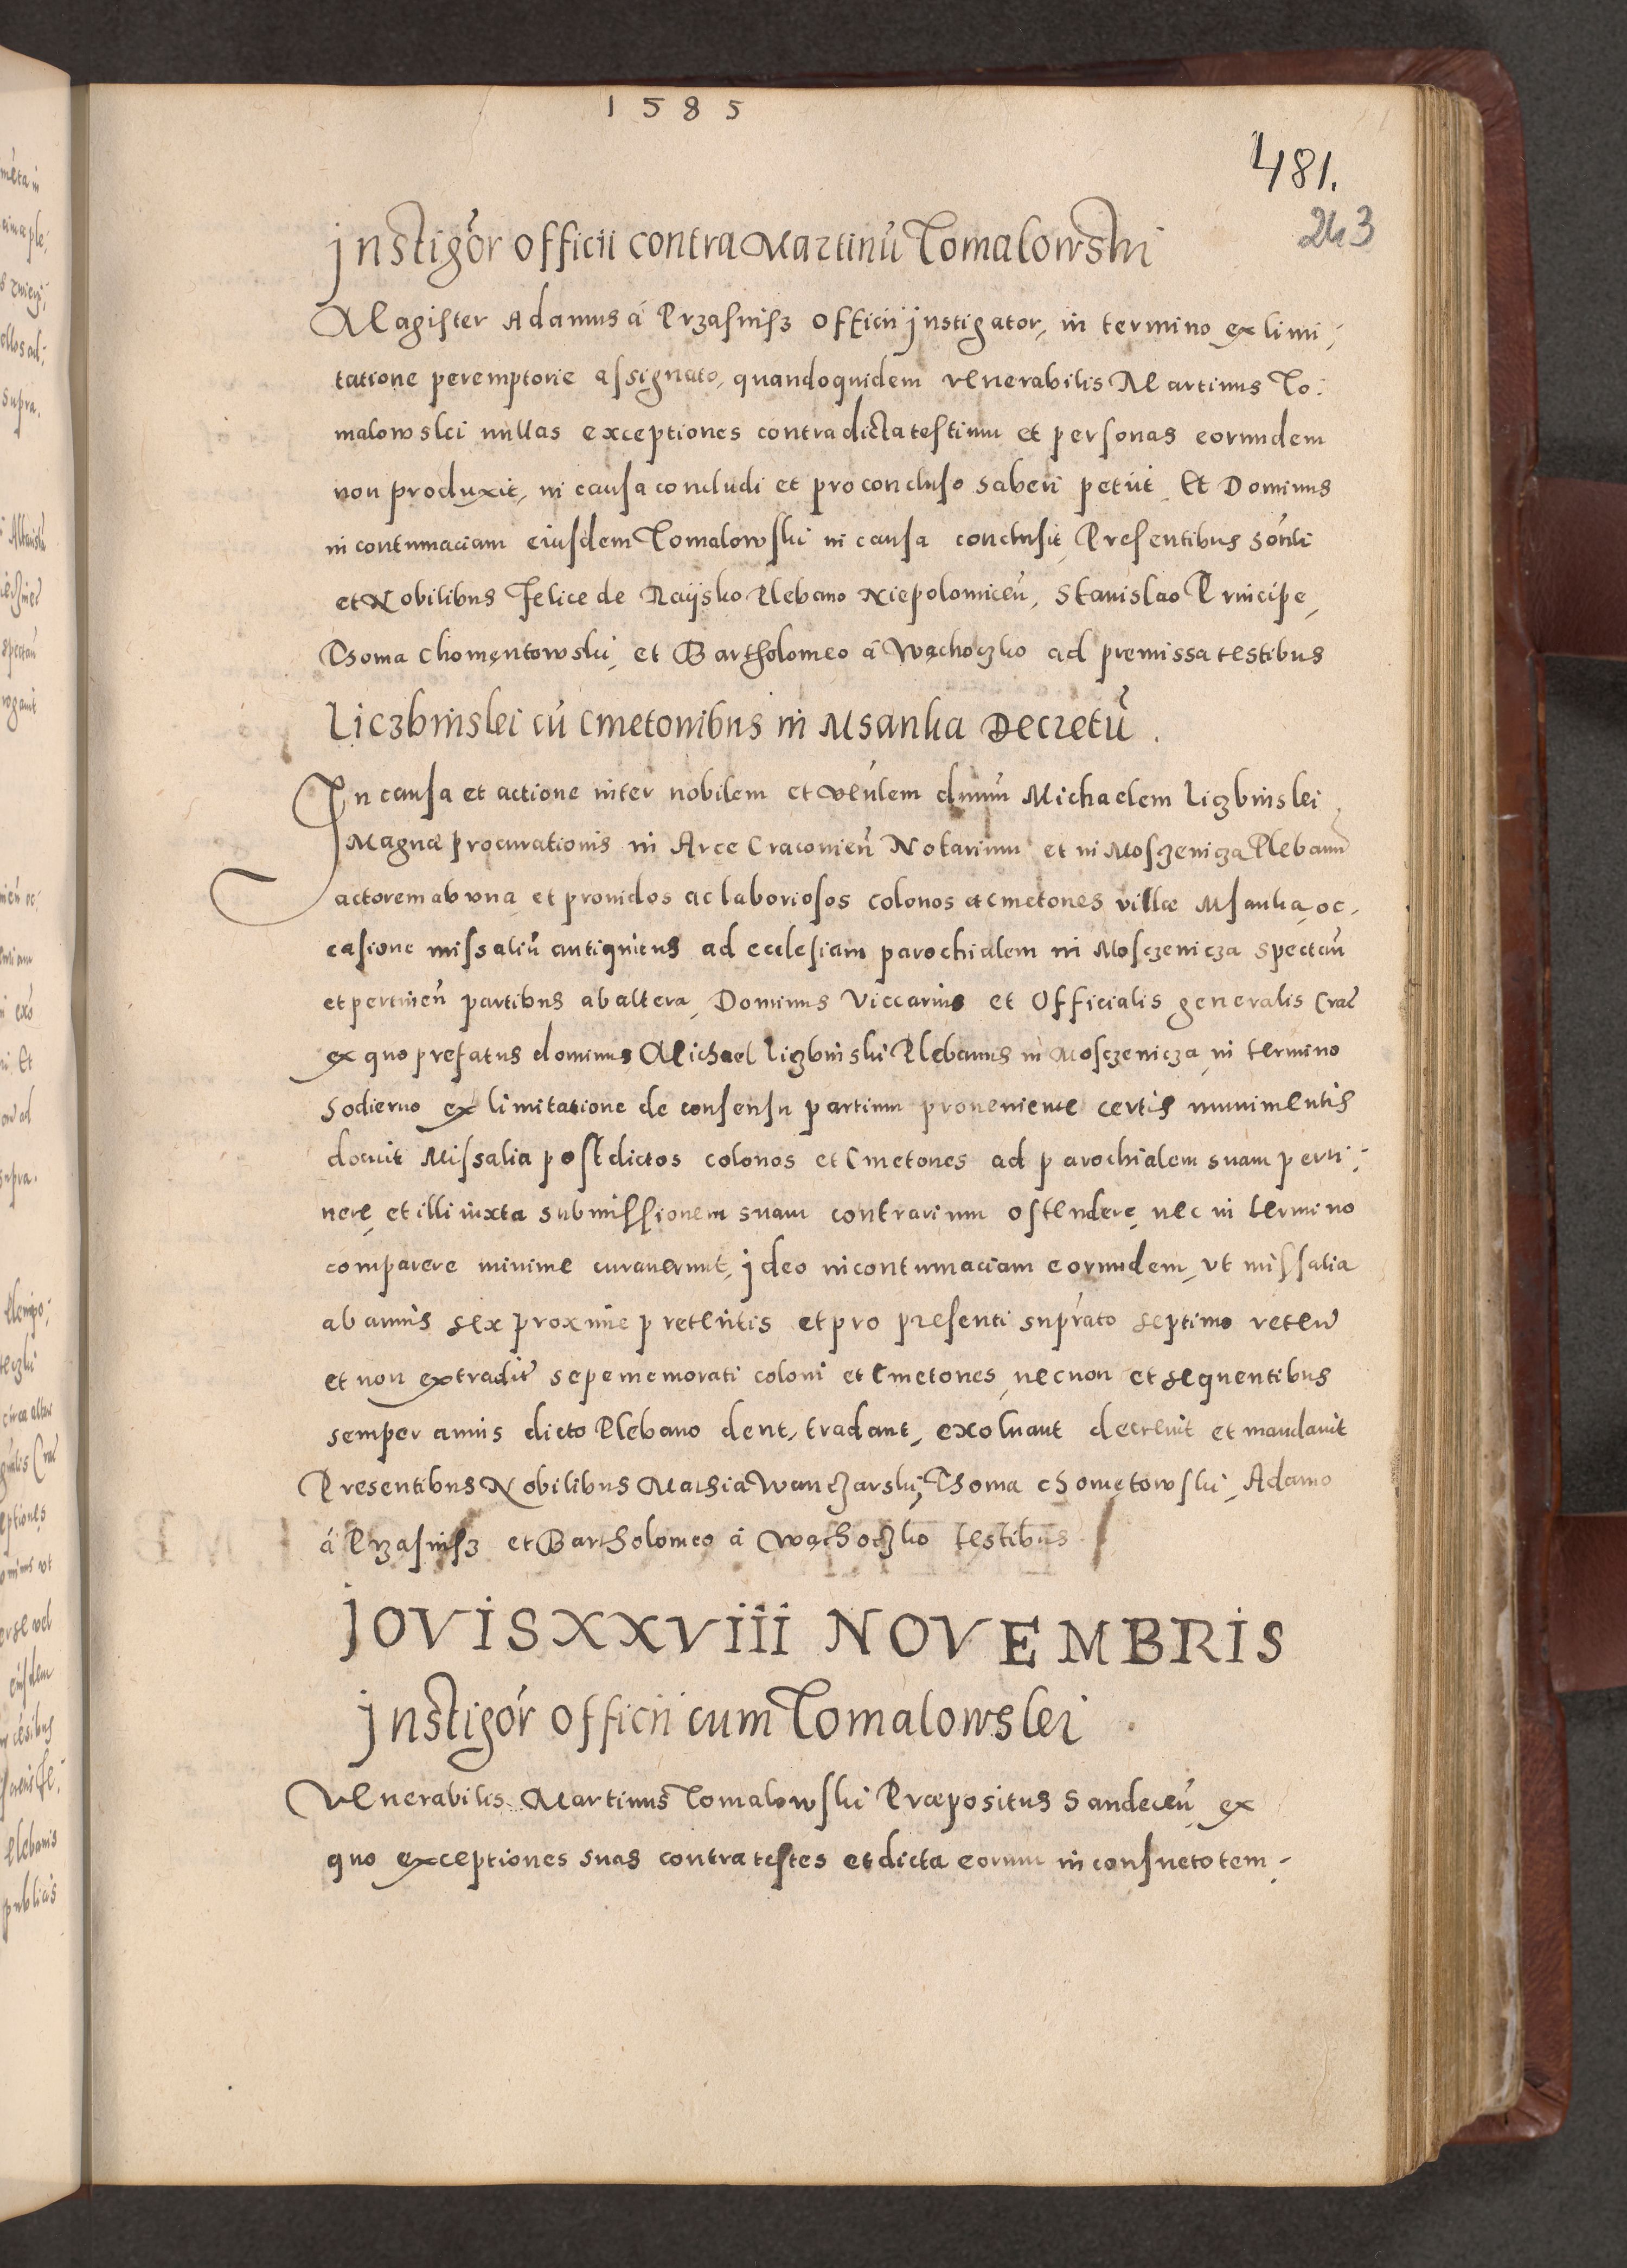 1585
481.
243
Instigōr officii contra Martinū Tomalowski
Magister Adamus á Przasnisz officii Instigator, in termino ex limi-
tatione peremptorie assignato, quandoquidem venerabilis Martinus To-
malowski nullas exceptiones contra dicta testium et personas eorundem
non produxit, in causa concludi et pro concluso haberi petiit. Et Dominus
in contumaciam eiusdem Tomalowski in causa conclusit, Presentibus hōnli
et Nobilibus Felice de Raÿsko Plebano Niepolomiceñ, Stanislao Principe,
Thoma Chomentowski, et Bartholomeo á Wąchoczko ad premissa testibus
Liczbinski cū Cmetonibus in Msanka Decretū.
In causa et actione inter nobilem et veñlem dnum Michaelem Liczbinski
Magnæ procurationis in Arce Cracovieñ Notarium et in Mosczenicza Plebanum
actorem ab vna, et providos ac laboriosos colonos et cmetones villæ Msanka, oc-
casione missaliū antiquitus ad ecclesiam parochialem in Mosczenicza spectañ
et pertineñ partibus ab altera, Dominus Viccarius et Officialis generalis Crac̃
ex quo prefatus dominus Michael Liczbinski Plebanus in Mosczenicza, in termino
hodierno ex limitatione de consensu partium proveniente certis munimentis
docuit Missalia post dictos colonos et Cmetones ad parochialem suam perti-
nere, et illi iuxta submissionem suam contrarium ostendere, nec in termino
comparere minime curaverunt, ideo in contumaciam eorundem, vt missalia
ab annis sex proxime preteritis et pro presenti suprato septimo reteñ
et non extradit̃ sepememorati coloni et Cmetones, necnon et sequentibus
semper annis dicto Plebano dent, tradant, exolvant decrevit et mandavit
Presentibus Nobilibus Mathia Wanczarski, Thoma Chomętowski, Adamo
á Przasnisz et Bartholomeo á Wąchoczko testibus
JOVIS XXVIII NOVEMBRIS
Instigōr officii cum Tomalowski
Venerabilis Martinus Tomalowski Præpositus Sandeceñ, ex
quo exceptiones suas contra testes et dicta eorum in consueto tem-